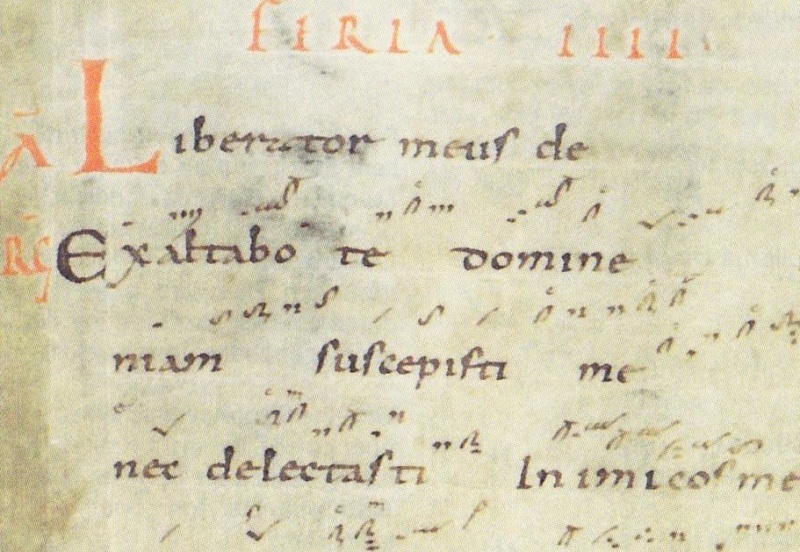 FIRIA IIII
A Liberator meus de
R Exaltabo te domine
niam suscepisti me
nec delectasti Inimicos me